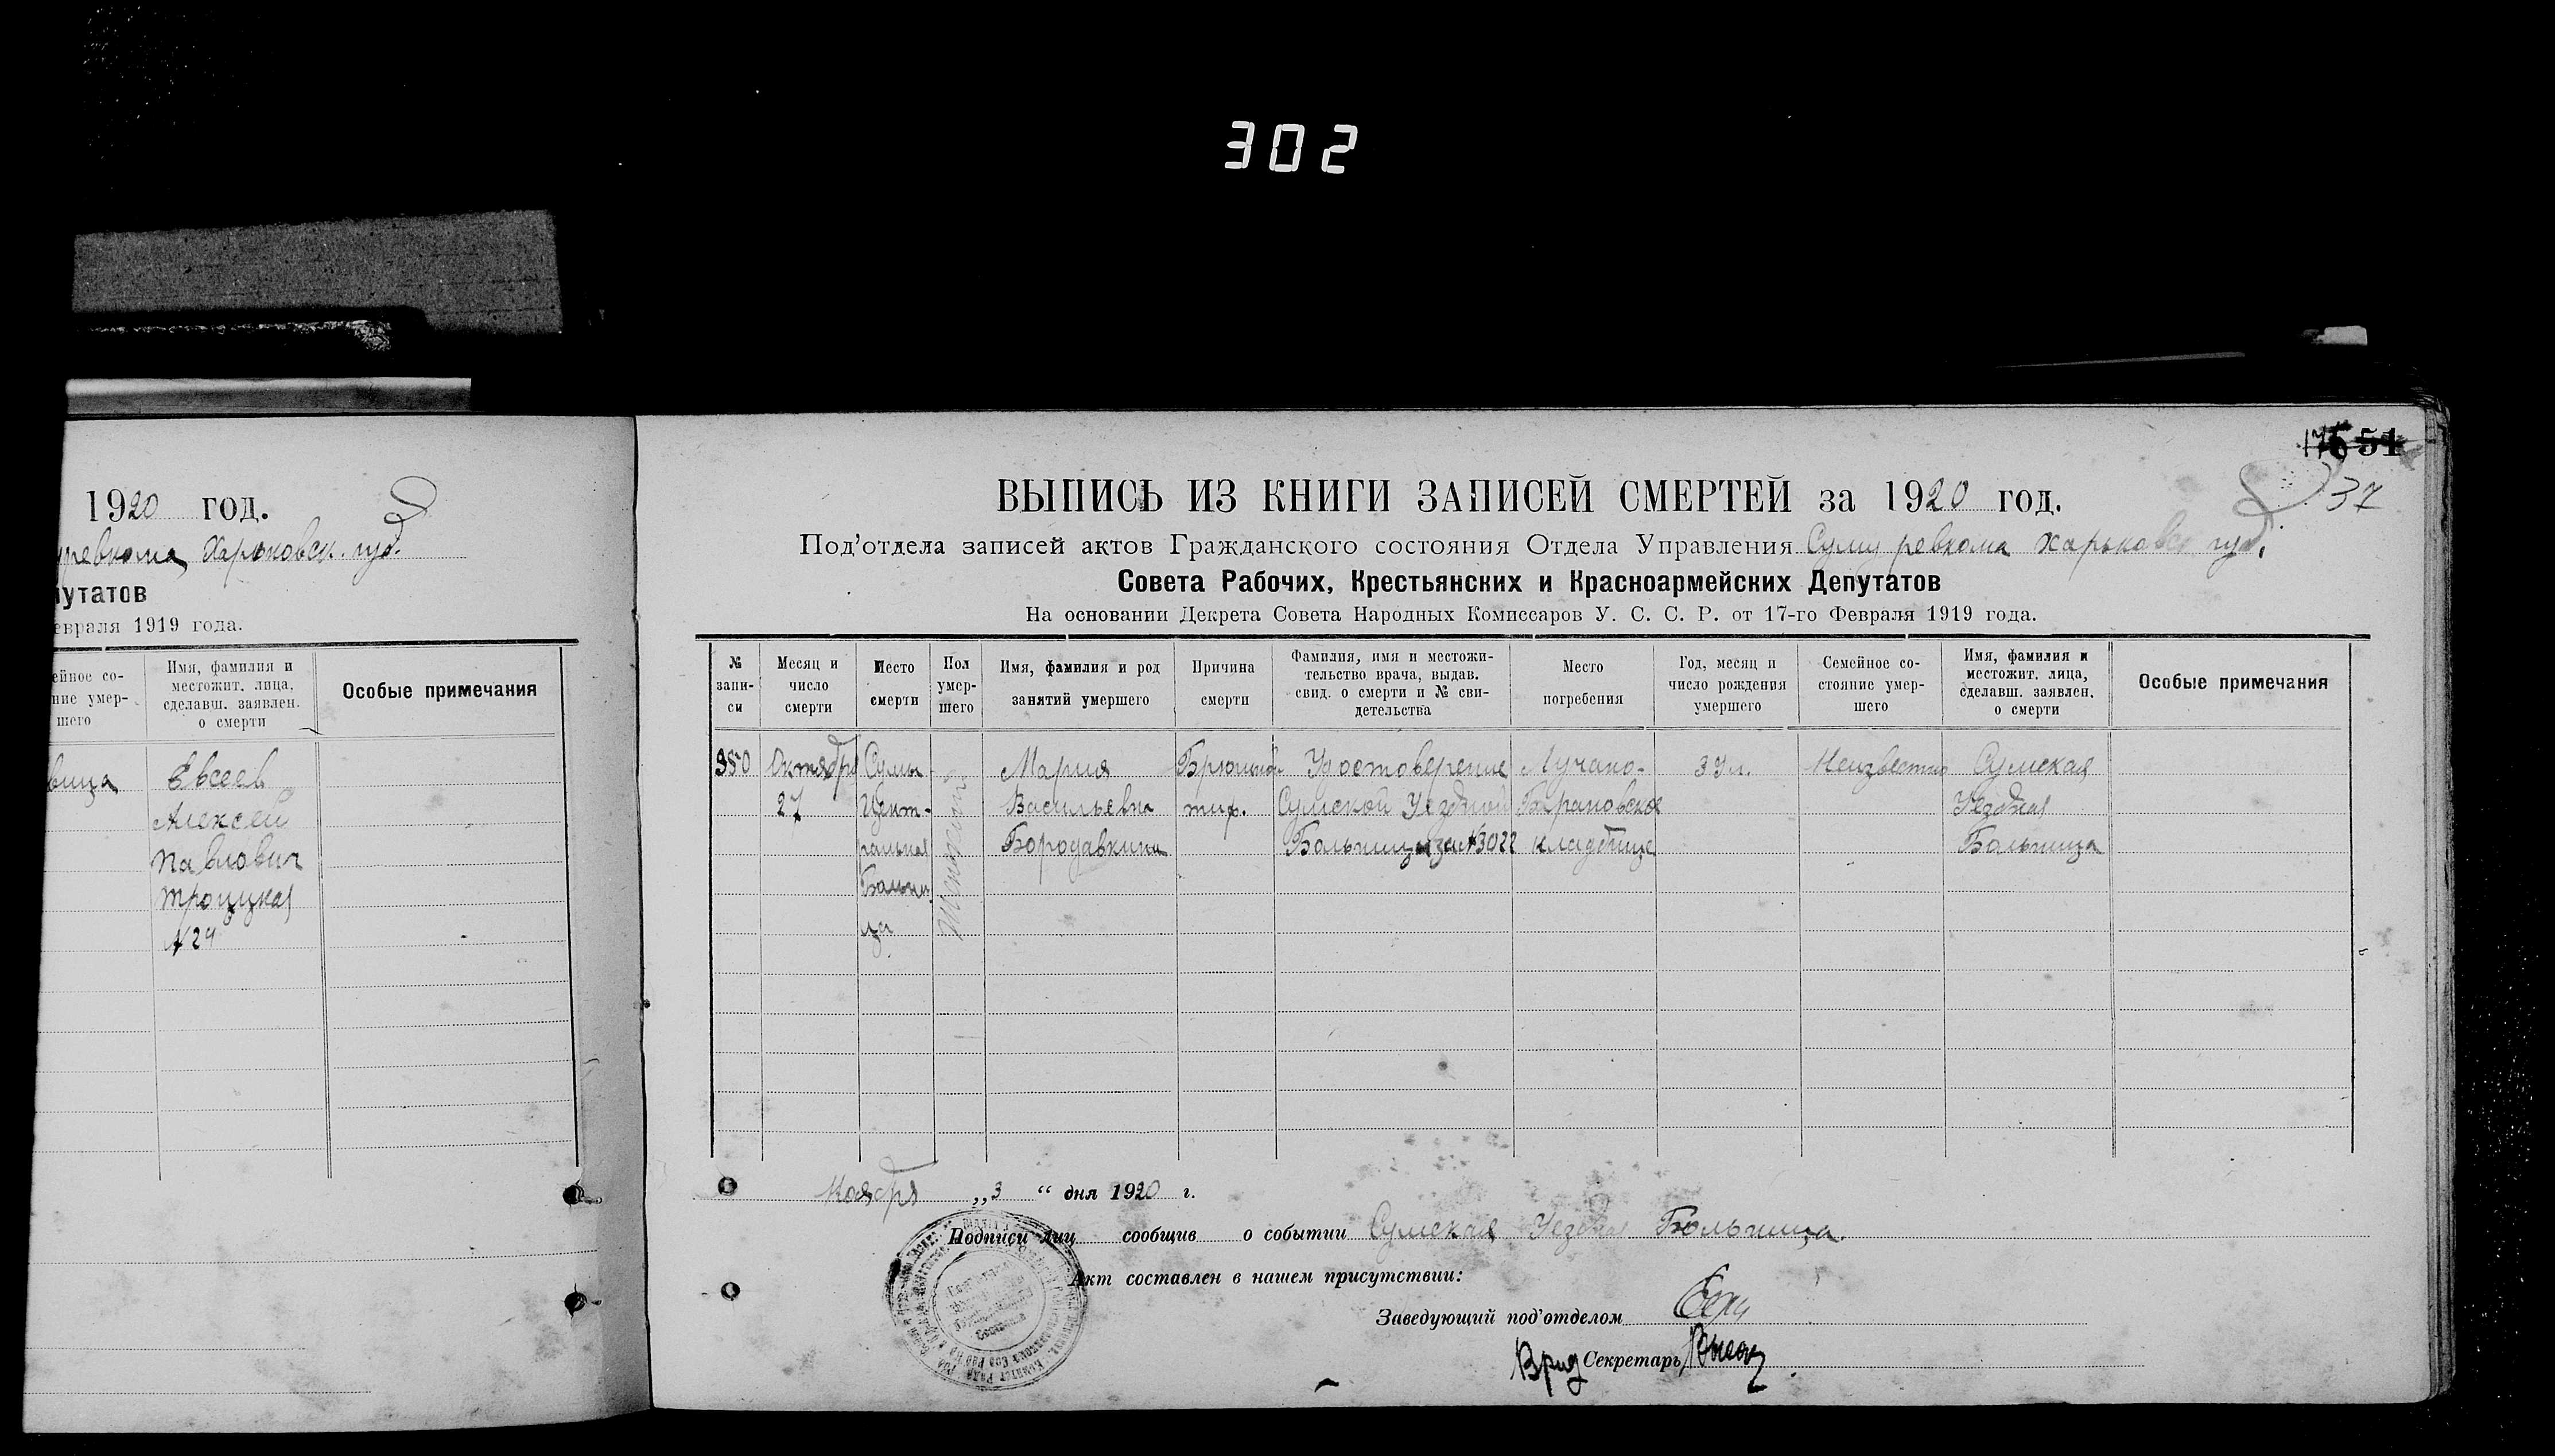 302
1920 год.
ревкома Харьковск. губ.
путатов
евраля 1919 года.
ейное со-
ние умер-
шего
Имя, фамилия и
местожит. лица,
сделавш. заявлен.
о смерти
Особые примечания
вица
Евсеев
Алексей
Павлович
Троицкая
№ 24
176 51
37
ВЫПИСЬ ИЗ КНИГИ ЗАПИСЕЙ СМЕРТЕЙ за 1920 год.
Под'отдела записей актов Гражданского состояния Отдела Управления Сум у ревкома Харьковск губ.
Совета Рабочих, Крестьянских и Красноармейских Депутатов
На основании Декрета Совета Народных Комиссаров У. С. С. Р. от 17-го Февраля 1919 года.
№
запи-
си
Месяц и
число
смерти
Место
смерти
Пол
умер-
шего
Имя, фамилия и род
занятий умершего
Причина
смерти
Фамилия, имя и местожи-
тельство врача, выдав.
свид. о смерти и № сви-
детельства
Место
погребения
Год, месяц и
число рождения
умершего
Семейное со-
стояние умер-
шего
Имя, фамилия и
местожит. лица,
сделавш. заявлен.
о смерти
Особые примечания
950
Октября
27
Сумы
Цент-
ральная
Больни
ца
Мария
Васильевна
Бородавкина
Брюшной
тиф.
Удостоверение
Сумской Уездной
Больницы за № 3022
Лучано-
Барановское
кладбище
39 л.
Неизвестно
Сумская
Уездная
Больница
Ноября „3“ дня 1920 г.
Подписи лиц сообщив о событии Сумская Уездная Больница.
Акт составлен в нашем присутствии:
Заведующий под'отделом
Врид Секретарь